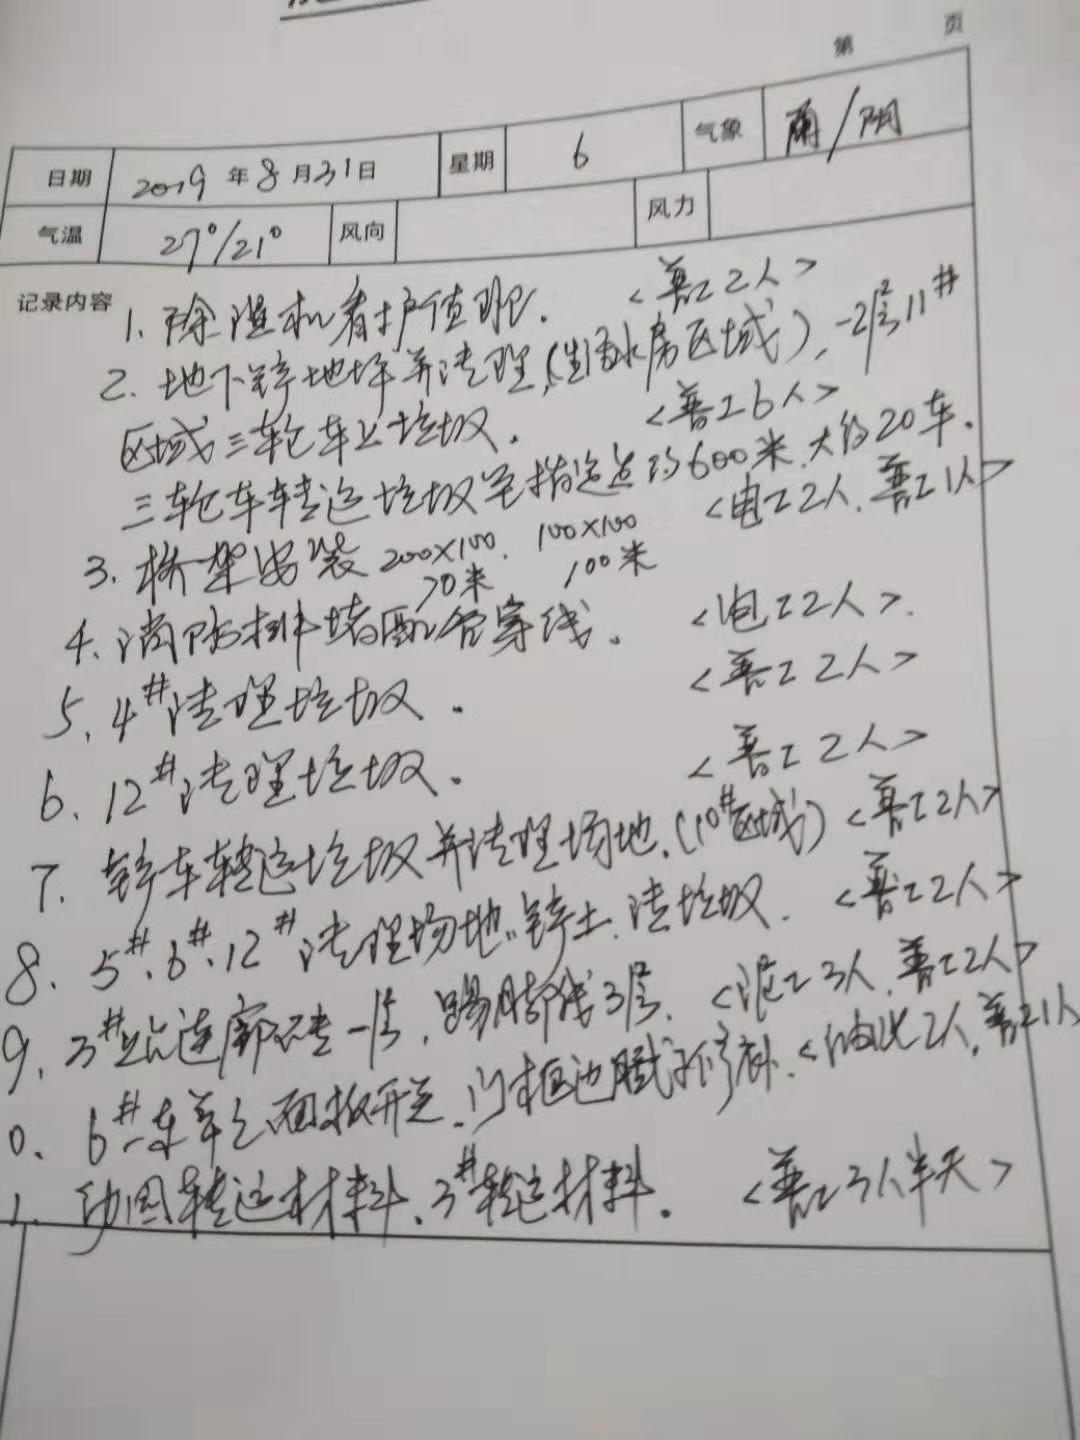 第 页
日期 2019年8月31日 星期 6 气象 雨/阴
气温 27°/21° 风向 风力
记录内容 1. 除湿机看护值班. <普工2人>
2. 地下铲地坪并清理,(生活水房区域),-2层11#
区域三轮车上垃圾. <普工6人>
三轮车转运垃圾至指定点约600米.大约20车.
3. 桥架安装 200×100. 100×100 <电工2人.普工1人>
70米 100米
4. 消防 堵配管穿线. <电工2人>.
5. 4#清理垃圾. <普工2人>
6. 12#清理垃圾. <普工2人>
7. 车转运垃圾并清理场地.(10#区域) <普工2人>
8. 5#.6#.12#清理场地.铲土.清垃圾. <普工2人>
9. 3# 连廊砖一层,踢脚线3层. <泥工3人.普工2人>
0. 6# 面板开关.门框边腻子修补. <油化2人.普工1人
1. 幼园转运材料.3#转运材料. <普工3人半天>